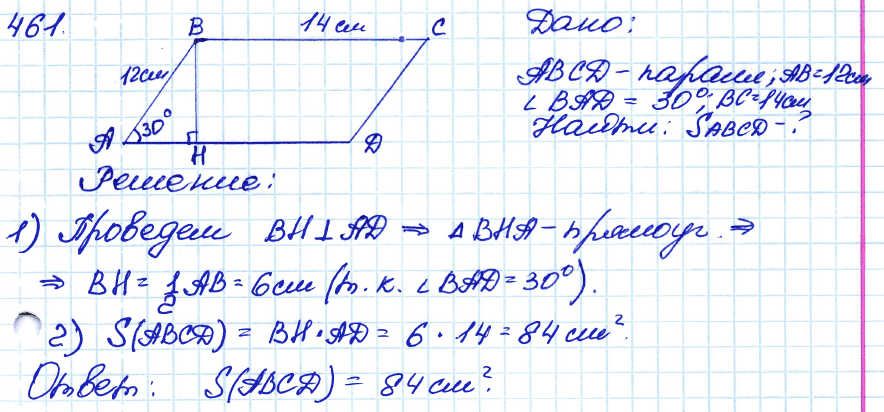 461.
B 14 см C
12 см
30°
A H D
Дано:
ABCD - паралл; AB = 12 см
∠ BAD = 30°; BC = 14 см
Найти: SABCD - ?
Решение:
1) Проведем BH ⊥ AD ⇒ △ BHA - прямоуг. ⇒
⇒ BH = 1/2 AB = 6 см (т. к. ∠ BAD = 30°).
2) S(ABCD) = BH · AD = 6 · 14 = 84 см².
Ответ: S(ABCD) = 84 см².